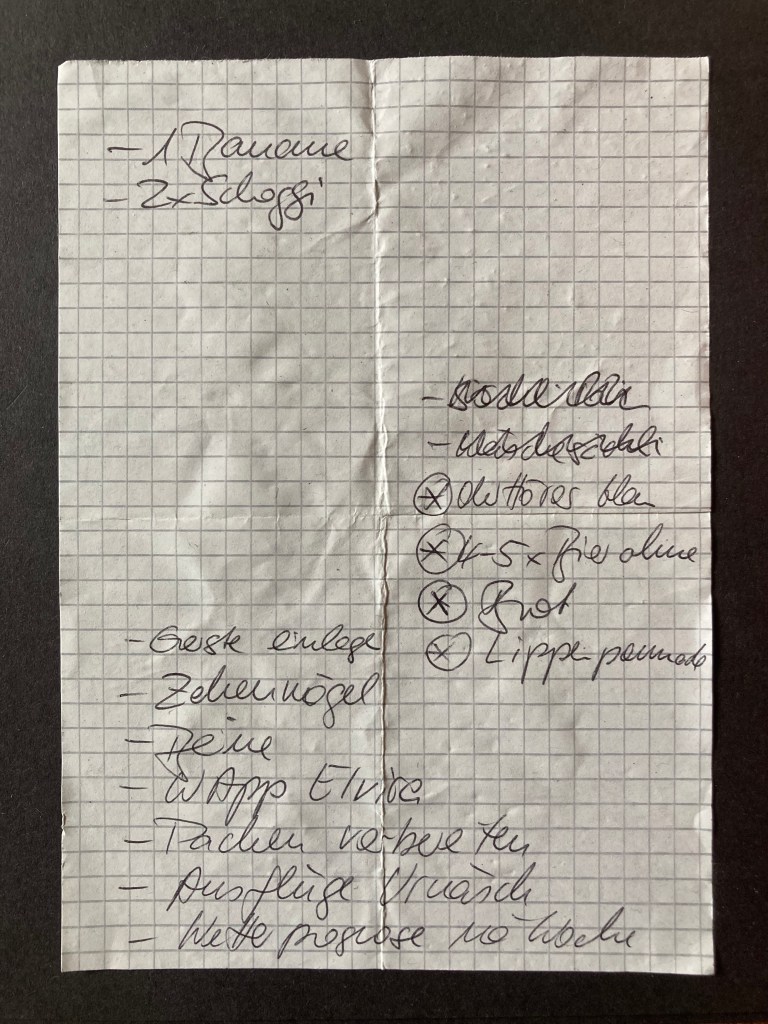 - 1 Banane
- 2x Schoggi
blau
4-5x Bier ohne
Brot
Lippenpommade
- Gerste einlege
- Zehennägel
- Beine
- WApp Elvira
- Packen vorbereiten
- Ausflüge Urnäsch
- Wetterprognose nä Woche